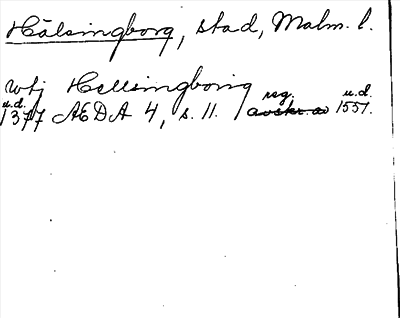 Hälsingborg, stad, Malm. l.
utj Hellsingborig
u.d. reg. u.d.
1377 AEDA 4, s. 11. avskr. av 1551.